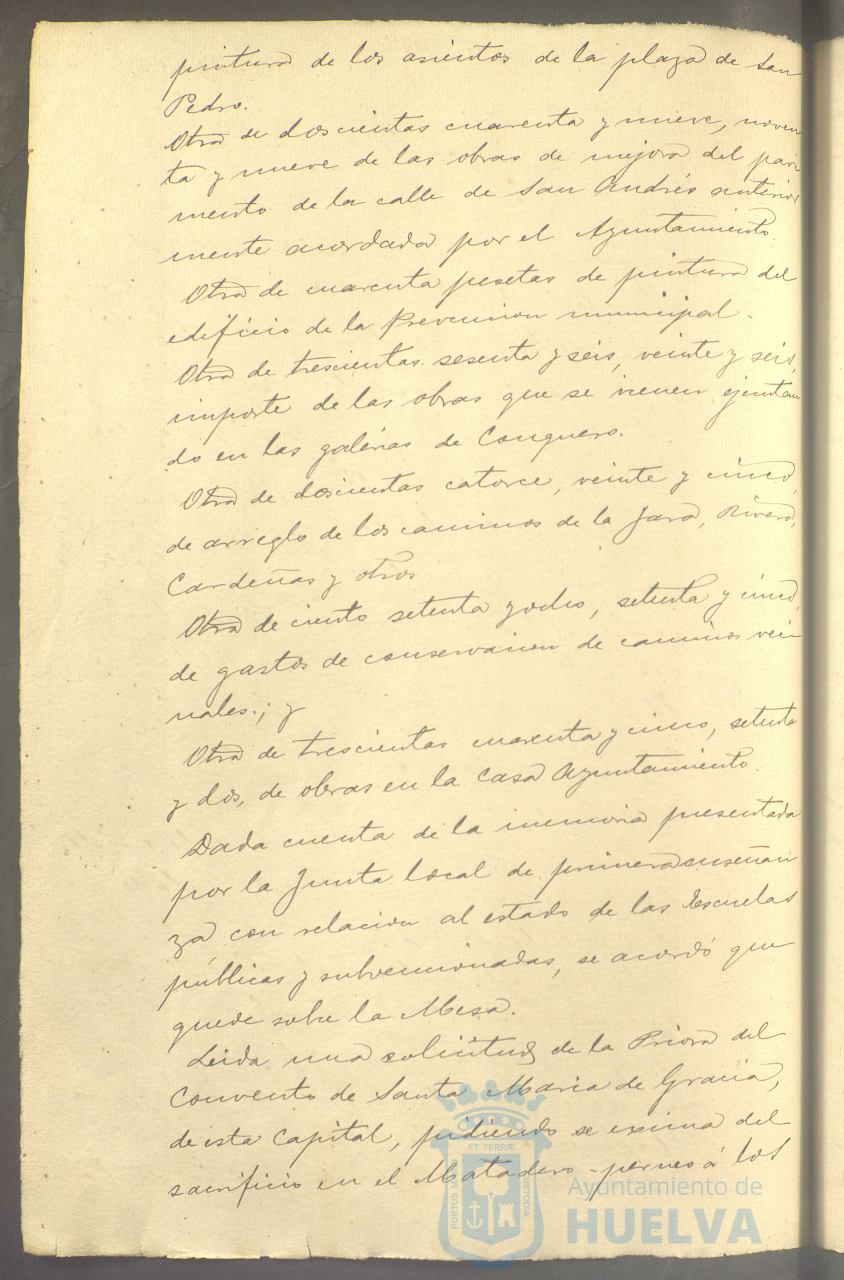 pintura de los asientos de la plaza de San
Pedro.
Otra de doscientas cuarenta y nueve, noven
ta y nueve de las obras de mejora del pavi
mento de la calle de San Andrés anterior
mente acordada por el Ayuntamiento.
Otra de cuarenta pesetas de pintura del
edificio de la Prevencion municipal.
Otra de trescientas sesenta y seis, veinte y seis,
importe de las obras que se vienen ejecutan
do en las galerias de Conquero.
Otra de doscientas catorce, veinte y cinco,
de arreglo de los caminos de la Jara, Rivera,
Cardeñas y otros
Otra de ciento setenta y ocho, setenta y cinco,
de gastos de conservacion de caminos veci
nales.; y
Otra de trescientas cuarenta y cinco, setenta
y dos, de obras en la Casa Ayuntamiento.
Dada cuenta de la memoria presentada
por la Junta local de primera enseñan
za con relacion al estado de las Escuelas
públicas y subvencionadas, se acordó que
quede sobre la Mesa.
Leida una solicitud de la Priora del
Convento de Santa Maria de Gracia,
de esta Capital, pidiendo se exima del
sacrificio en el Matadero á los
ET TERRÆ
PORTUS MARIS
CUSTODIA
Ayuntamiento de
HUELVA